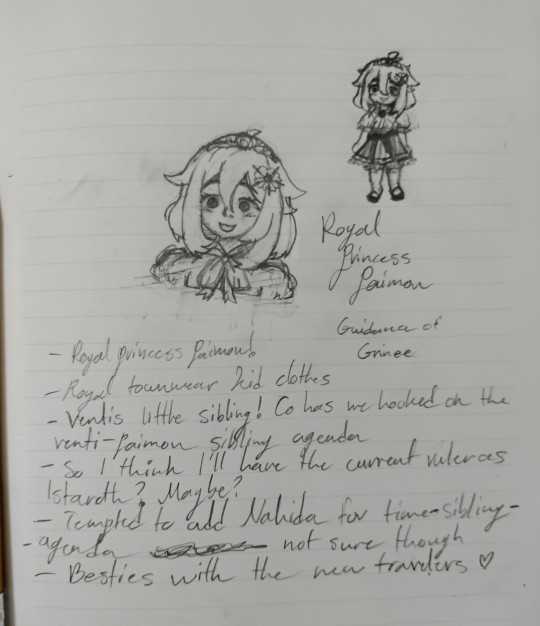 Royal
princess
Paimon
Guidance of
Grinee
- Royal princess Paimon!
- Royal townwear kid clothes
- Ventis little sibling! Co has me hooked on the
venti-paimon sibling agenda
- So I think I'll have the current ruler as
Istaroth? Maybe?
- Tempted to add Nahida for time-sibling-
-agenda not sure though
- Besties with the new travelers ♡